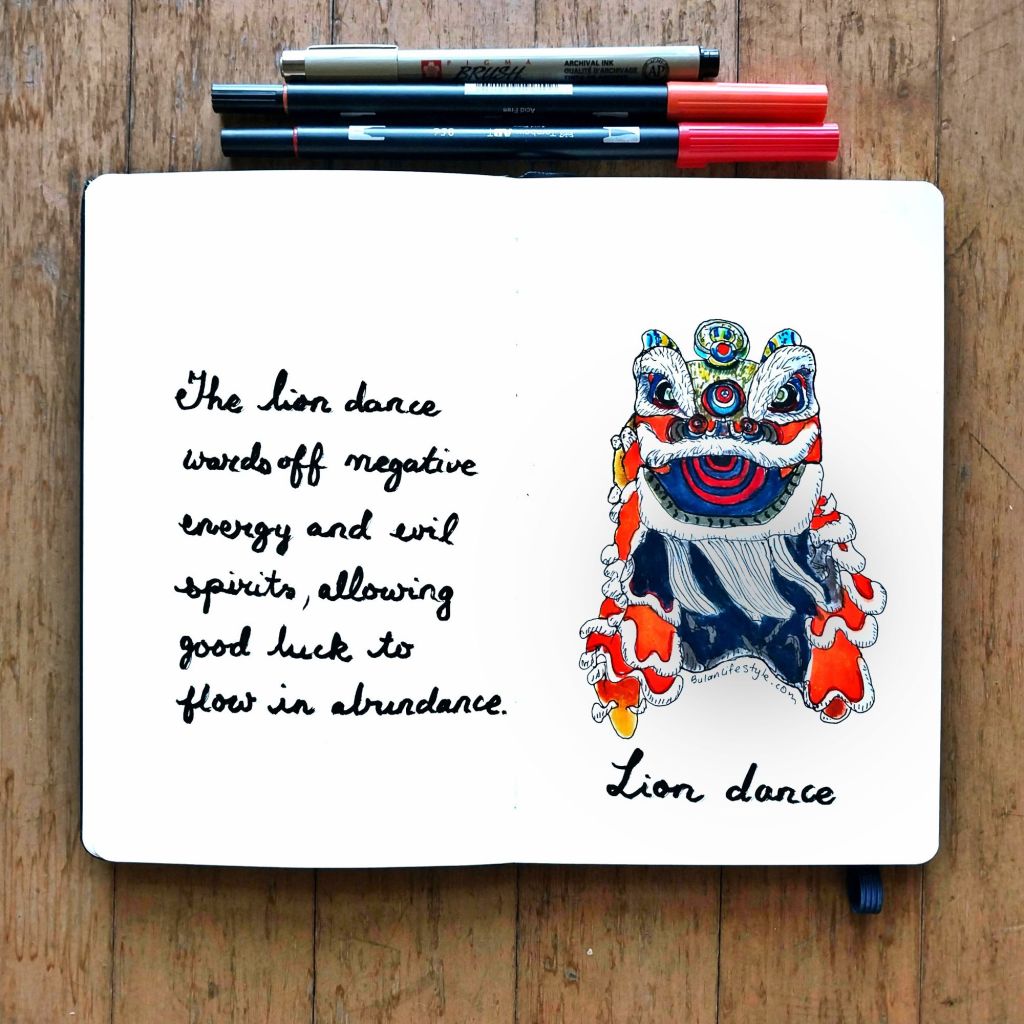 PIGMA
BRUSH
ARCHIVAL INK
QUALITÉ D'ARCHIVAGE
AP
Acid Free
ABT
The lion dance
wards off negative
energy and evil
spirits, allowing
good luck to
flow in abundance.
BulanLifestyle.com
Lion dance